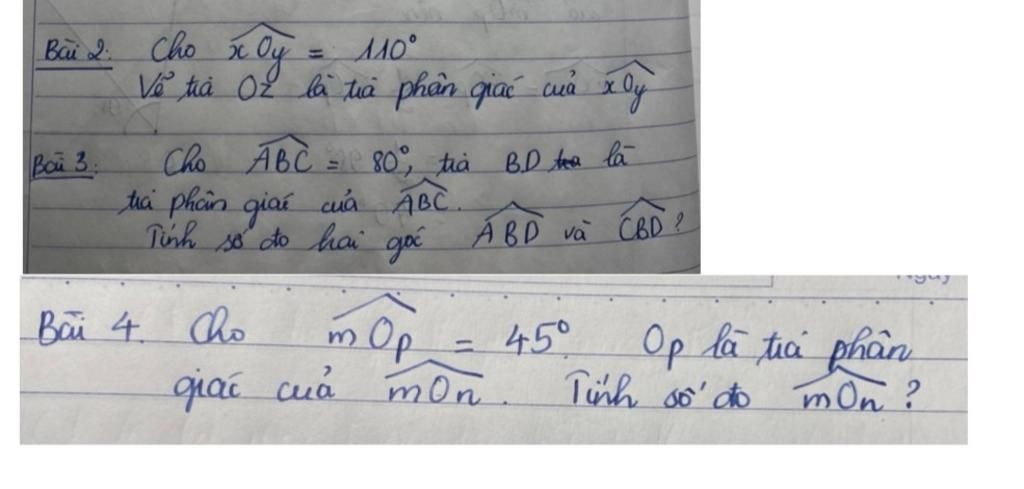 Bài 2: Cho xOy = 110°
Vẽ tia Oz là tia phân giác của xOy
Bài 3: Cho ABC = 80°, tia BD là
tia phân giác của ABC.
Tính số đo hai góc ABD và CBD?
Bài 4. Cho mOp = 45°. Op là tia phân
giác của mOn. Tính số đo mOn?